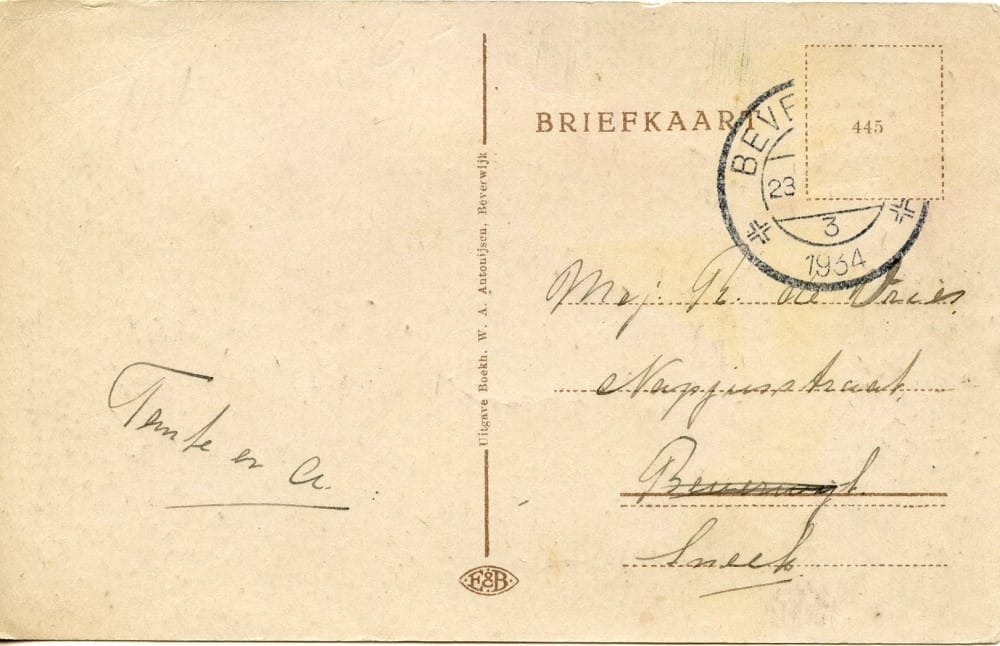 BRIEFKAART
445
BEVE
23
3
1934
Mej. Tr. de Vries
Napjusstraat.
Beverwijk.
Sneek
Uitgave Boekh. W. A. Antonijsen, Beverwijk
en A.
E&B